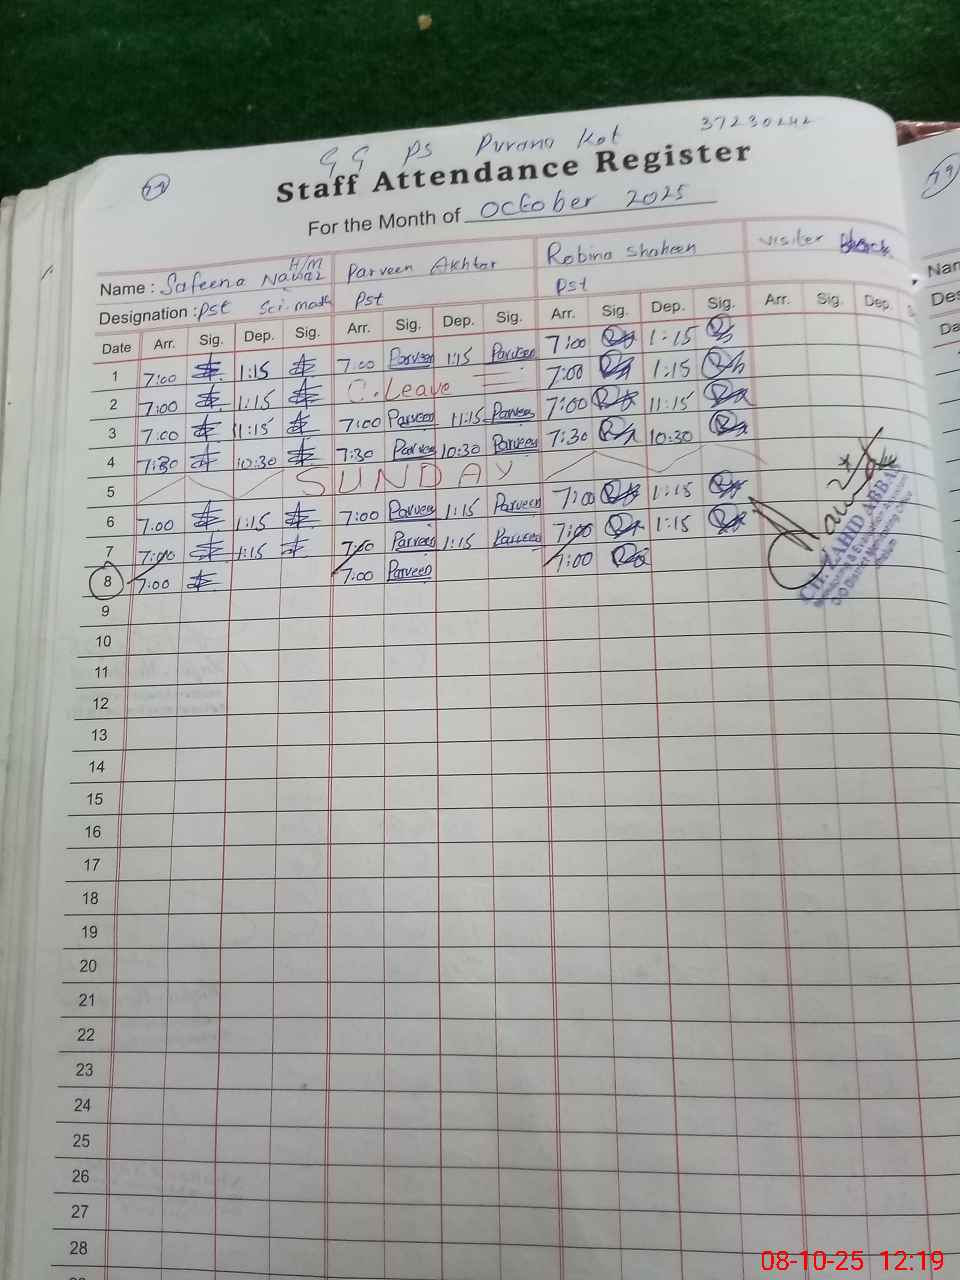 G G PS Purana Kot 37230242
Staff Attendance Register
For the Month of October 2025
Name : Safeena Nawaz H/M Parveen Akhtar Robina Shaheen Visiter
Designation : Pst Sci. math Pst Pst
Date Arr. Sig. Dep. Sig. Arr. Sig. Dep. Sig. Arr. Sig. Dep. Sig. Arr. Sig. Dep.
1 7:00 1:15 7:00 Parveen 1:15 Parveen 7:00 1:15
2 7:00 1:15 C. Leave 7:00 1:15
3 7:00 11:15 7:00 Parveen 11:15 Parveen 7:00 11:15
4 7:30 10:30 7:30 Parveen 10:30 Parveen 7:30 10:30
5 SUNDAY
6 7:00 1:15 7:00 Parveen 1:15 Parveen 7:00 1:15
7 7:00 1:15 7:00 Parveen 1:15 Parveen 7:00 1:15
8 7:00 7:00 Parveen 7:00
9
10
11
12
13
14
15
16
17
18
19
20
21
22
23
24
25
26
27
28
Ch. ZAHID ABBA
08-10-25 12:19